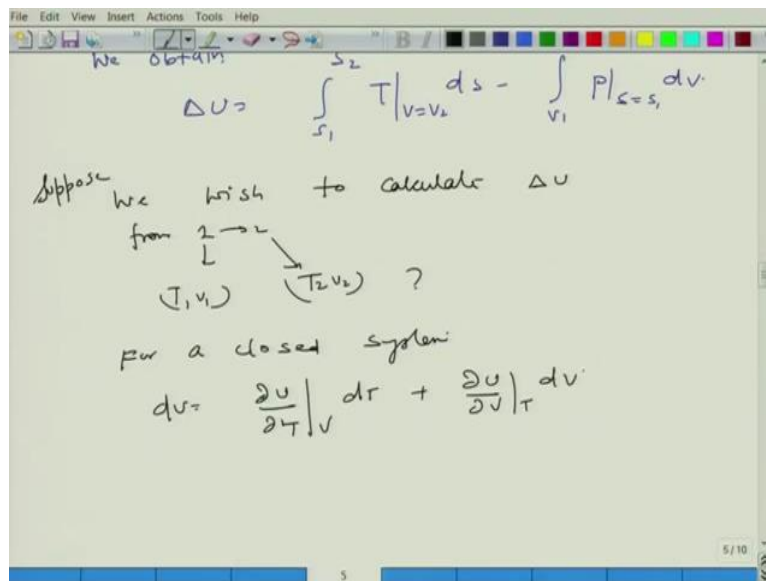 File Edit View Insert Actions Tools Help
We obtain
ΔU= ∫_{S1}^{S2} T|_{V=V2} ds - ∫_{V1} P|_{S=S1} dv.
Suppose We wish to calculate ΔU
from 1→2
(T1 V1) (T2 V2) ?
For a closed system
dU= ∂U/∂T|_V dT + ∂U/∂V|_T dV.
5/10
5